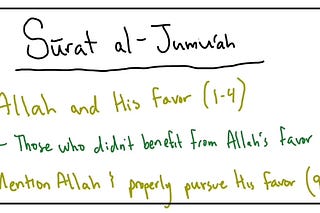 Sūrat al-Jumu'ah
Allah and His Favor (1-4)
- Those who didn't benefit from Allah's favor
Mention Allah & properly pursue His favor (9